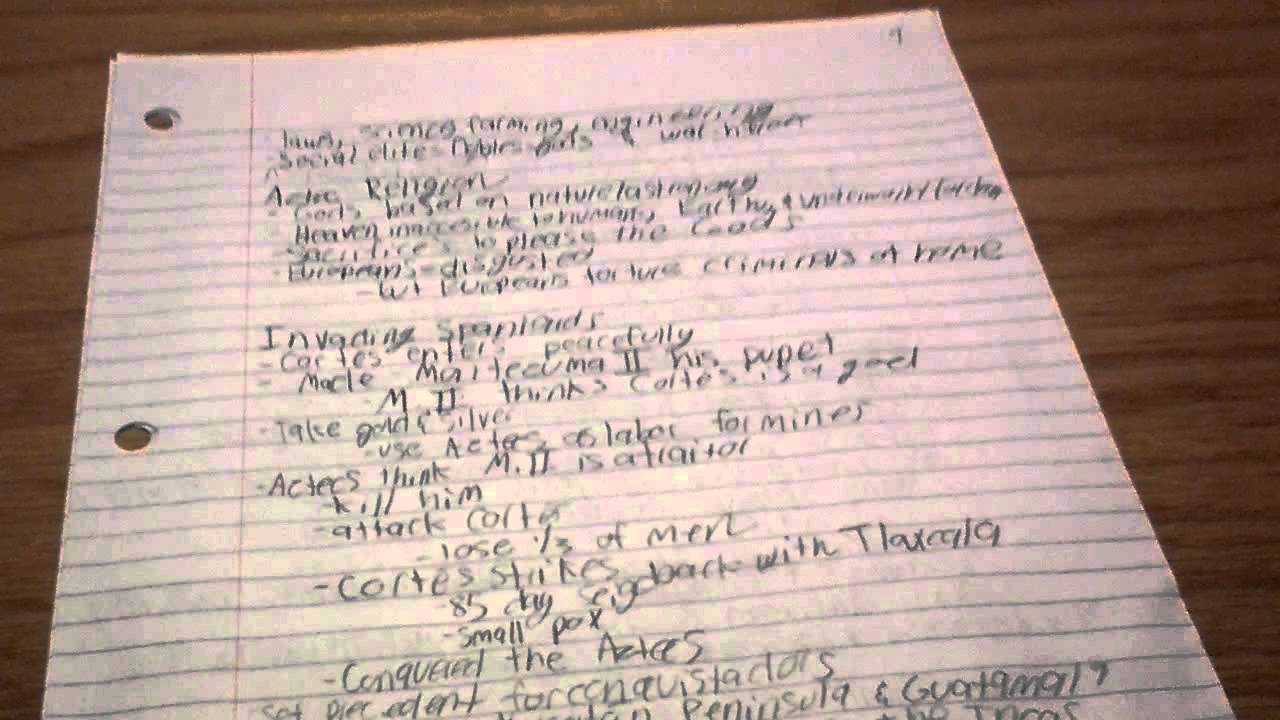 9
laws, science, farming, engineering
- Social elite = Nobles, &
Aztec Religion
- Gods based on nature/astronomy
- Heaven inaccesible to humans, Earth, &
- Sacrifices to please the Gods
- Europeans disgusted
- Europeans torture criminals at home
Invading Spaniards
- Cortes enters peacefully
- Made II his pupet
- M II thinks Cortes is a god
- Take gold & silver
- use Aztecs as labor for mines
- Aztecs think M. II is a traitor
- Kill him
- attack Cortes
- lose 1/3 of men
- Cortes strikes back with Tlaxcala
- 85 day
- small pox
- Conquered the Aztecs
set precedent for conquistadors
Peninsula &
the Incas